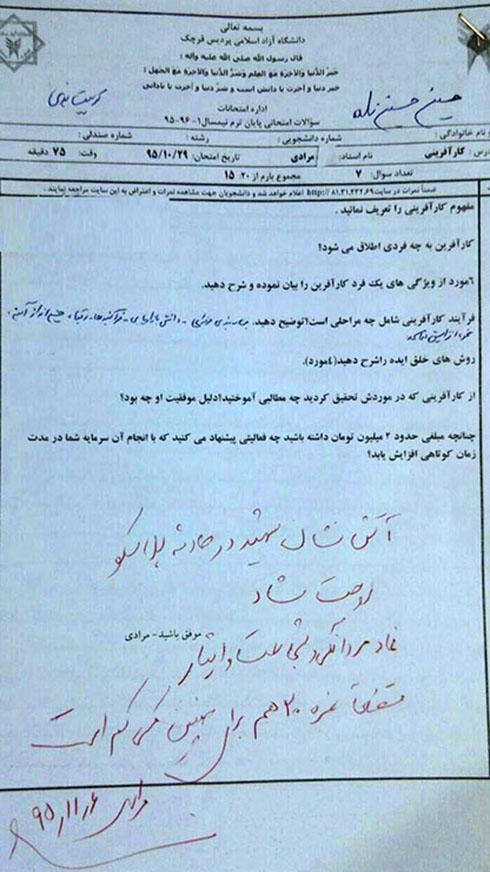 بسمه تعالی
دانشگاه آزاد اسلامی پردیس قرچک
قال رسول الله صلی الله علیه واله :
خیر الدنیا والآخرة مع العلم وشر الدنیا والآخرة مع الجهل :
خیر دنیا و آخرت با دانش است و شر دنیا و آخرت با نادانی
اداره امتحانات
سؤالات امتحانی پایان ترم نیمسال۱-۹۶-۹۵
حسین حسین زاده
تربیت بدنی
و نام خانوادگی : شماره دانشجویی : رشته : شماره صندلی :
درس : کارآفرینی نام استاد: مرادی تاریخ امتحان: ۹۵/۱۰/۲۹ وقت: ۷۵ دقیقه
تعداد سوال: ۷ مجموع بارم از۲۰: ۱۵
ضمنا نمرات در سایت http:// ۸۱.۳۱.۲۳۲.۶۹ اعلام خواهد شد و دانشجویان جهت مشاهده نمرات و اعتراض به این سایت مراجعه نمایند .
مفهوم کارآفرینی را تعریف نمائید .
کارآفرین به چه فردی اطلاق می شود؟
۶مورد از ویژگی های یک فرد کارآفرین را بیان نموده و شرح دهید.
فرآیند کارآفرینی شامل چه مراحلی است؟توضیح دهید.
روش های خلق ایده راشرح دهید(٤مورد).
از کارآفرینی که در موردش تحقیق کردید چه مطالبی آموختید؟دلیل موفقیت او چه بود؟
چنانچه مبلغی حدود ۲ میلیون تومان داشته باشید چه فعالیتی پیشنهاد می کنید که با انجام آن سرمایه شما در مدت
زمان کوتاهی افزایش یابد؟
آتش نشان شهید در حادثه پلاسکو
روحت شاد
نماد مردانگی و شجاعت و ایثار
موفق باشید- مرادی
متفقاً نمره ۲۰ هم برای چنین کسی کم است
مرادی ۹۵/۱۱/۶